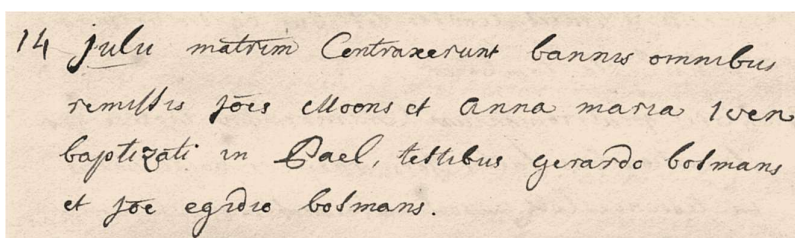 14 julii matrim Contraxerunt bannis omnibus
remissis joēs Moons et Anna maria Iven
baptizati in Pael, testibus gerardo bosmans
et joē egidio bosmans.